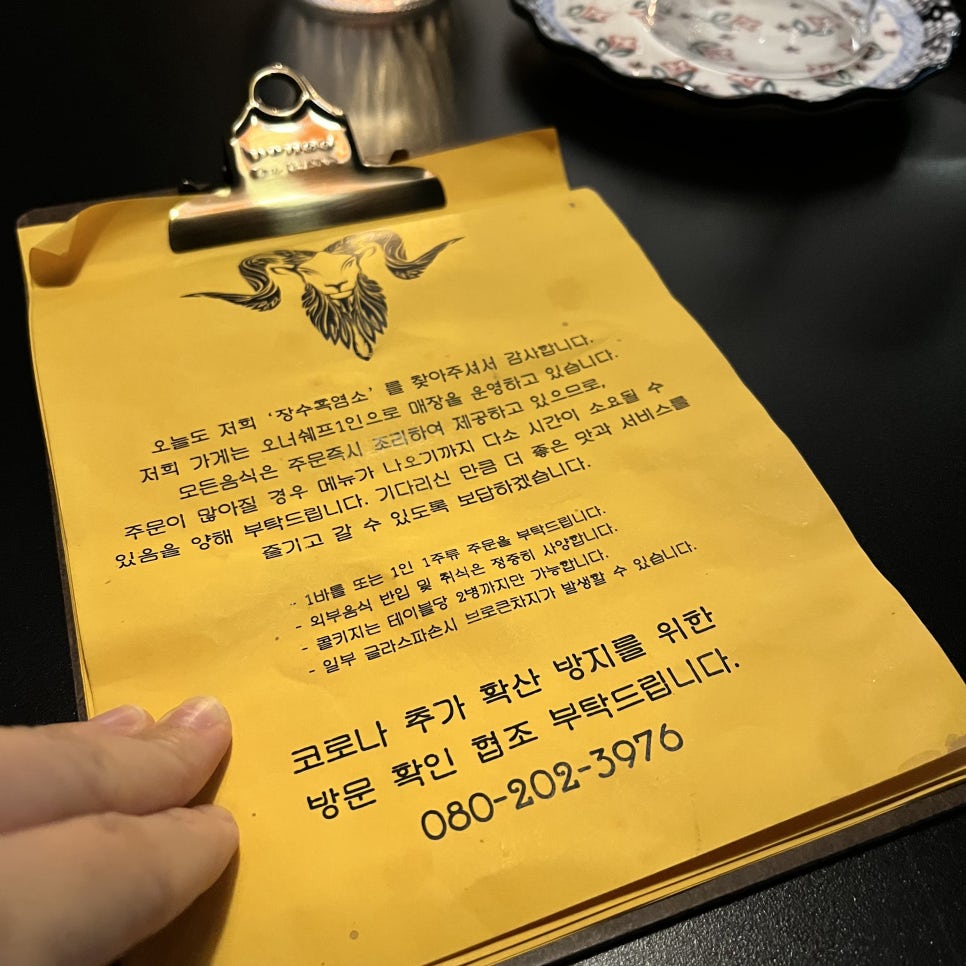 오늘도 저희 '장수흑염소' 를 찾아주셔서 감사합니다.
저희 가게는 오너쉐프1인으로 매장을 운영하고 있습니다.
모든음식은 주문즉시 조리하여 제공하고 있으므로,
주문이 많아질 경우 메뉴가 나오기까지 다소 시간이 소요될 수
있음을 양해 부탁드립니다. 기다리신 만큼 더 좋은 맛과 서비스를
즐기고 갈 수 있도록 보답하겠습니다.
- 1바틀 또는 1인 1주류 주문을 부탁드립니다.
- 외부음식 반입 및 취식은 정중히 사양합니다.
- 콜키지는 테이블당 2병까지만 가능합니다.
- 일부 글라스파손시 브로큰차지가 발생할 수 있습니다.
코로나 추가 확산 방지를 위한
방문 확인 협조 부탁드립니다.
080-202-3976